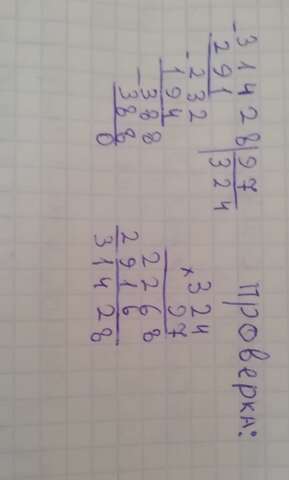 - 31428 | 97
291 | 324
- 232
194
- 388
388
0
Проверка:
× 324
97
2268
2916
31428